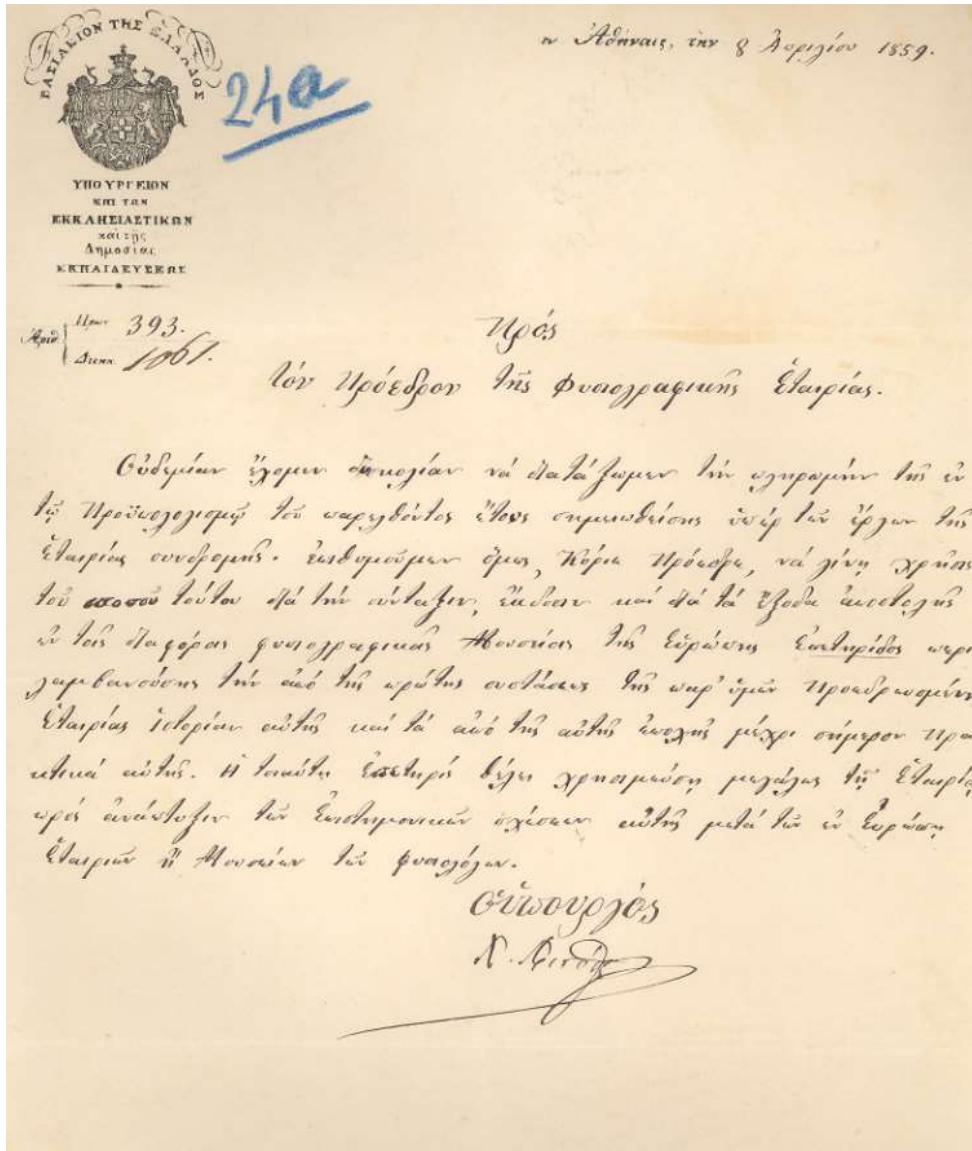 ΒΑΣΙΛΕΙΟΝ ΤΗΣ ΕΛΛΑΔΟΣ
24a
ν Ἀθήναις, τὴν 8 Ἀπριλίου 1859.
ΥΠΟΥΡΓΕΙΟΝ
ΕΠΙ ΤΩΝ
ΕΚΚΛΗΣΙΑΣΤΙΚΩΝ
καὶ τῆς
Δημοσίας
ΕΚΠΑΙΔΕΥΣΕΩΣ
Ἀριθ Πρωτ 393.
Διεκπ. 1061.
Πρός
Τόν Πρόεδρον τῆς Φυσιογραφικῆς Ἑταιρίας.
Οὐδεμίαν ἔχομεν δυσκολίαν νά διατάξωμεν τήν πληρωμήν τῆς ἐν
τῷ Προϋπολογισμῷ τοῦ παρελθόντος ἔτους σημειωθείσης ὑπέρ τῶν ἔργων τῆς
Ἑταιρίας συνδρομῆς. Ἐπιθυμοῦμεν ὅμως, Κύριε Πρόεδρε, νά γίνῃ χρῆσις
τοῦ ποσοῦ τούτου διά τήν σύνταξιν, ἔκδοσιν καί διά τά ἔξοδα ἀποστολῆς
τάς διαφόρας φυσιογραφικάς τῆς Εὐρώπης Ἐπετηρίδος περι
λαμβανούσης τήν ἀπό τῆς πρώτης συστάσεως τῆς παρ' ὑμῶν Προεδρευομένης
Ἑταιρίας ἱστορίαν αὐτῆς καί τά ἀπό τῆς αὐτῆς ἐποχῆς μέχρι σήμερον Πρα
κτικά αὐτῆς. Ἡ τοιαύτη Ἐπετηρίς θέλει χρησιμεύσῃ μεγάλως τῇ Ἑταιρίᾳ
πρός ἀνάπτυξιν τῶν Ἐπιστημονικῶν σχέσεων αὐτῆς μετά τῶν ἐν Εὐρώπῃ
Ἑταιριῶν ἤ Μουσείων τῶν φυσιολόγων.
Ὁ Ὑπουργός
Χ.